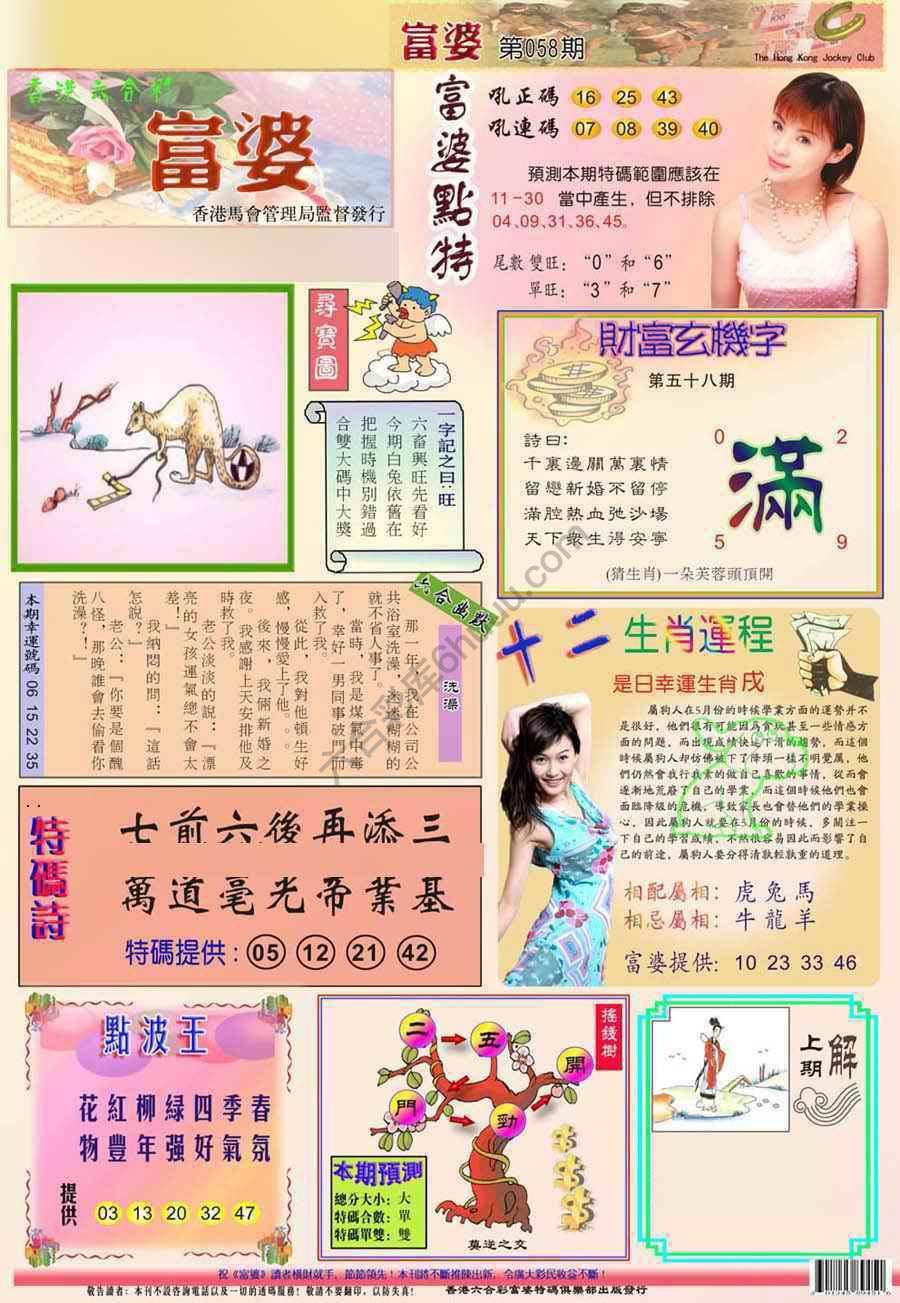 富婆 第058期
The Hong Kong Jockey Club
香港六合彩
富婆
香港馬會管理局監督發行
富婆點特
吼正碼 16 25 43
吼連碼 07 08 39 40
預測本期特碼範圍應該在
11-30 當中產生，但不排除
04、09、31、36、45。
尾數雙旺：“0”和“6”
單旺：“3”和“7”
尋寶圖
一字記之曰：旺
六畜興旺先看好
今期白兔依舊在
把握時機別錯過
合雙大碼中大獎
財富玄機字
第五十八期
詩曰：
千裏邊關萬裏情
留戀新婚不留停
滿腔熱血弛沙場
天下衆生得安寧
0 2
滿
5 9
(猜生肖)一朵芙蓉頭頂開
六合幽默
洗澡
那一年，我在公司公
共浴室洗澡，迷迷糊糊的
就不省人事了。
當時，我是煤氣中毒
了，幸好一男同事破門而
入救了我。
從此，我對他頓生好
感，慢慢愛上了他。。
後來，我倆新婚之
夜。我感謝上天安排他及
時救了我。
老公淡淡的說：『漂
亮的女孩運氣總不會太
差！』
我納悶的問：『這話
怎說？』
老公：『你要是個醜
八怪，那晚誰會去偷看你
洗澡？！』
本期幸運號碼 06 15 22 35
十二生肖運程
是日幸運生肖戌
屬狗人在5月份的時候學業方面的運勢并不
是很好，他們很有可能因爲貪玩甚至一些情感方
面的問題，而出現成績快速下滑的趨勢，而這個
時候屬狗人却仿佛被下了降頭一樣不明覺厲，他
們仍然會我行我素的做自己喜歡的事情，從而會
逐漸地荒廢了自己的學業，而這個時候他們也會
面臨降級的危機，導致家長也會替他們的學業操
心，因此屬狗人就要在5月份的時候，多關注一
下自己的學習成績，不然很容易因此而影響了自
己的前途，屬狗人要分得清孰輕孰重的道理。
相配屬相：虎兔馬
相忌屬相：牛龍羊
富婆提供：10 23 33 46
特碼詩
七前六後再添三
萬道毫光帝業基
特碼提供：05 12 21 42
點波王
花紅柳緑四季春
物豐年强好氣氛
提供 03 13 20 32 47
搖錢樹
二 五
開
門 勁
本期預測
總分大小：大
特碼合數：單
特碼單雙：雙
莫逆之交
上期解
祝《富婆》讀者橫財就手，節節領先！本刊將不斷推陳出新，令廣大彩民收益不斷！
敬告讀者：本刊不設咨詢電話以及一切的透碼服務！敬請不要翻印，以防失真！
香港六合彩富婆特碼俱樂部出版發行